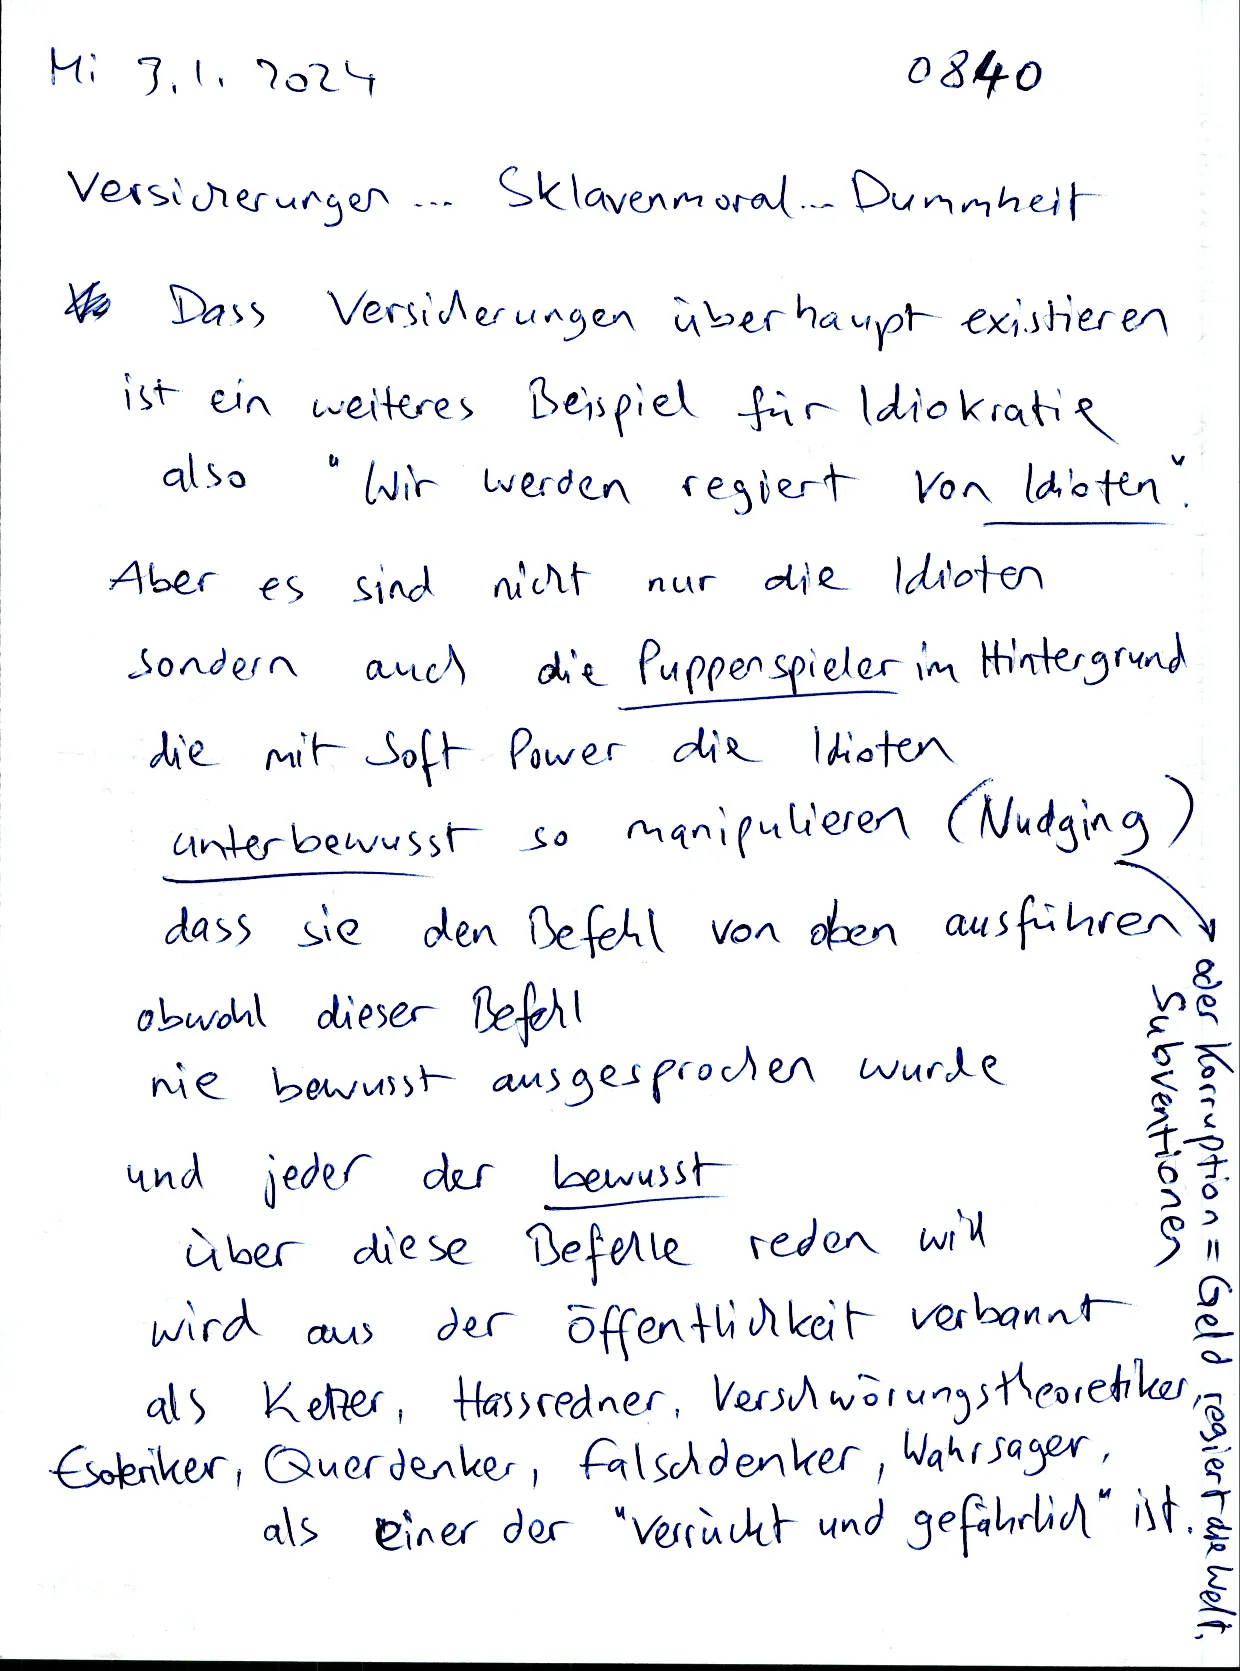 Mi 3.1.2024 0840
Versicherungen ... Sklavenmoral ... Dummheit
Dass Versicherungen überhaupt existieren
ist ein weiteres Beispiel für Idiokratie
also "Wir werden regiert von Idioten".
Aber es sind nicht nur die Idioten
sondern auch die Puppenspieler im Hintergrund
die mit Soft Power die Idioten
unterbewusst so manipulieren (Nudging)
dass sie den Befehl von oben ausführen
obwohl dieser Befehl
nie bewusst ausgesprochen wurde
und jeder der bewusst
über diese Befehle reden will
wird aus der Öffentlichkeit verbannt
als Ketzer, Hassredner, Verschwörungstheoretiker,
Esoteriker, Querdenker, Falschdenker, Wahrsager,
als einer der "verrückt und gefährlich" ist.
oder Korruption = Geld regiert die Welt.
Subventionen